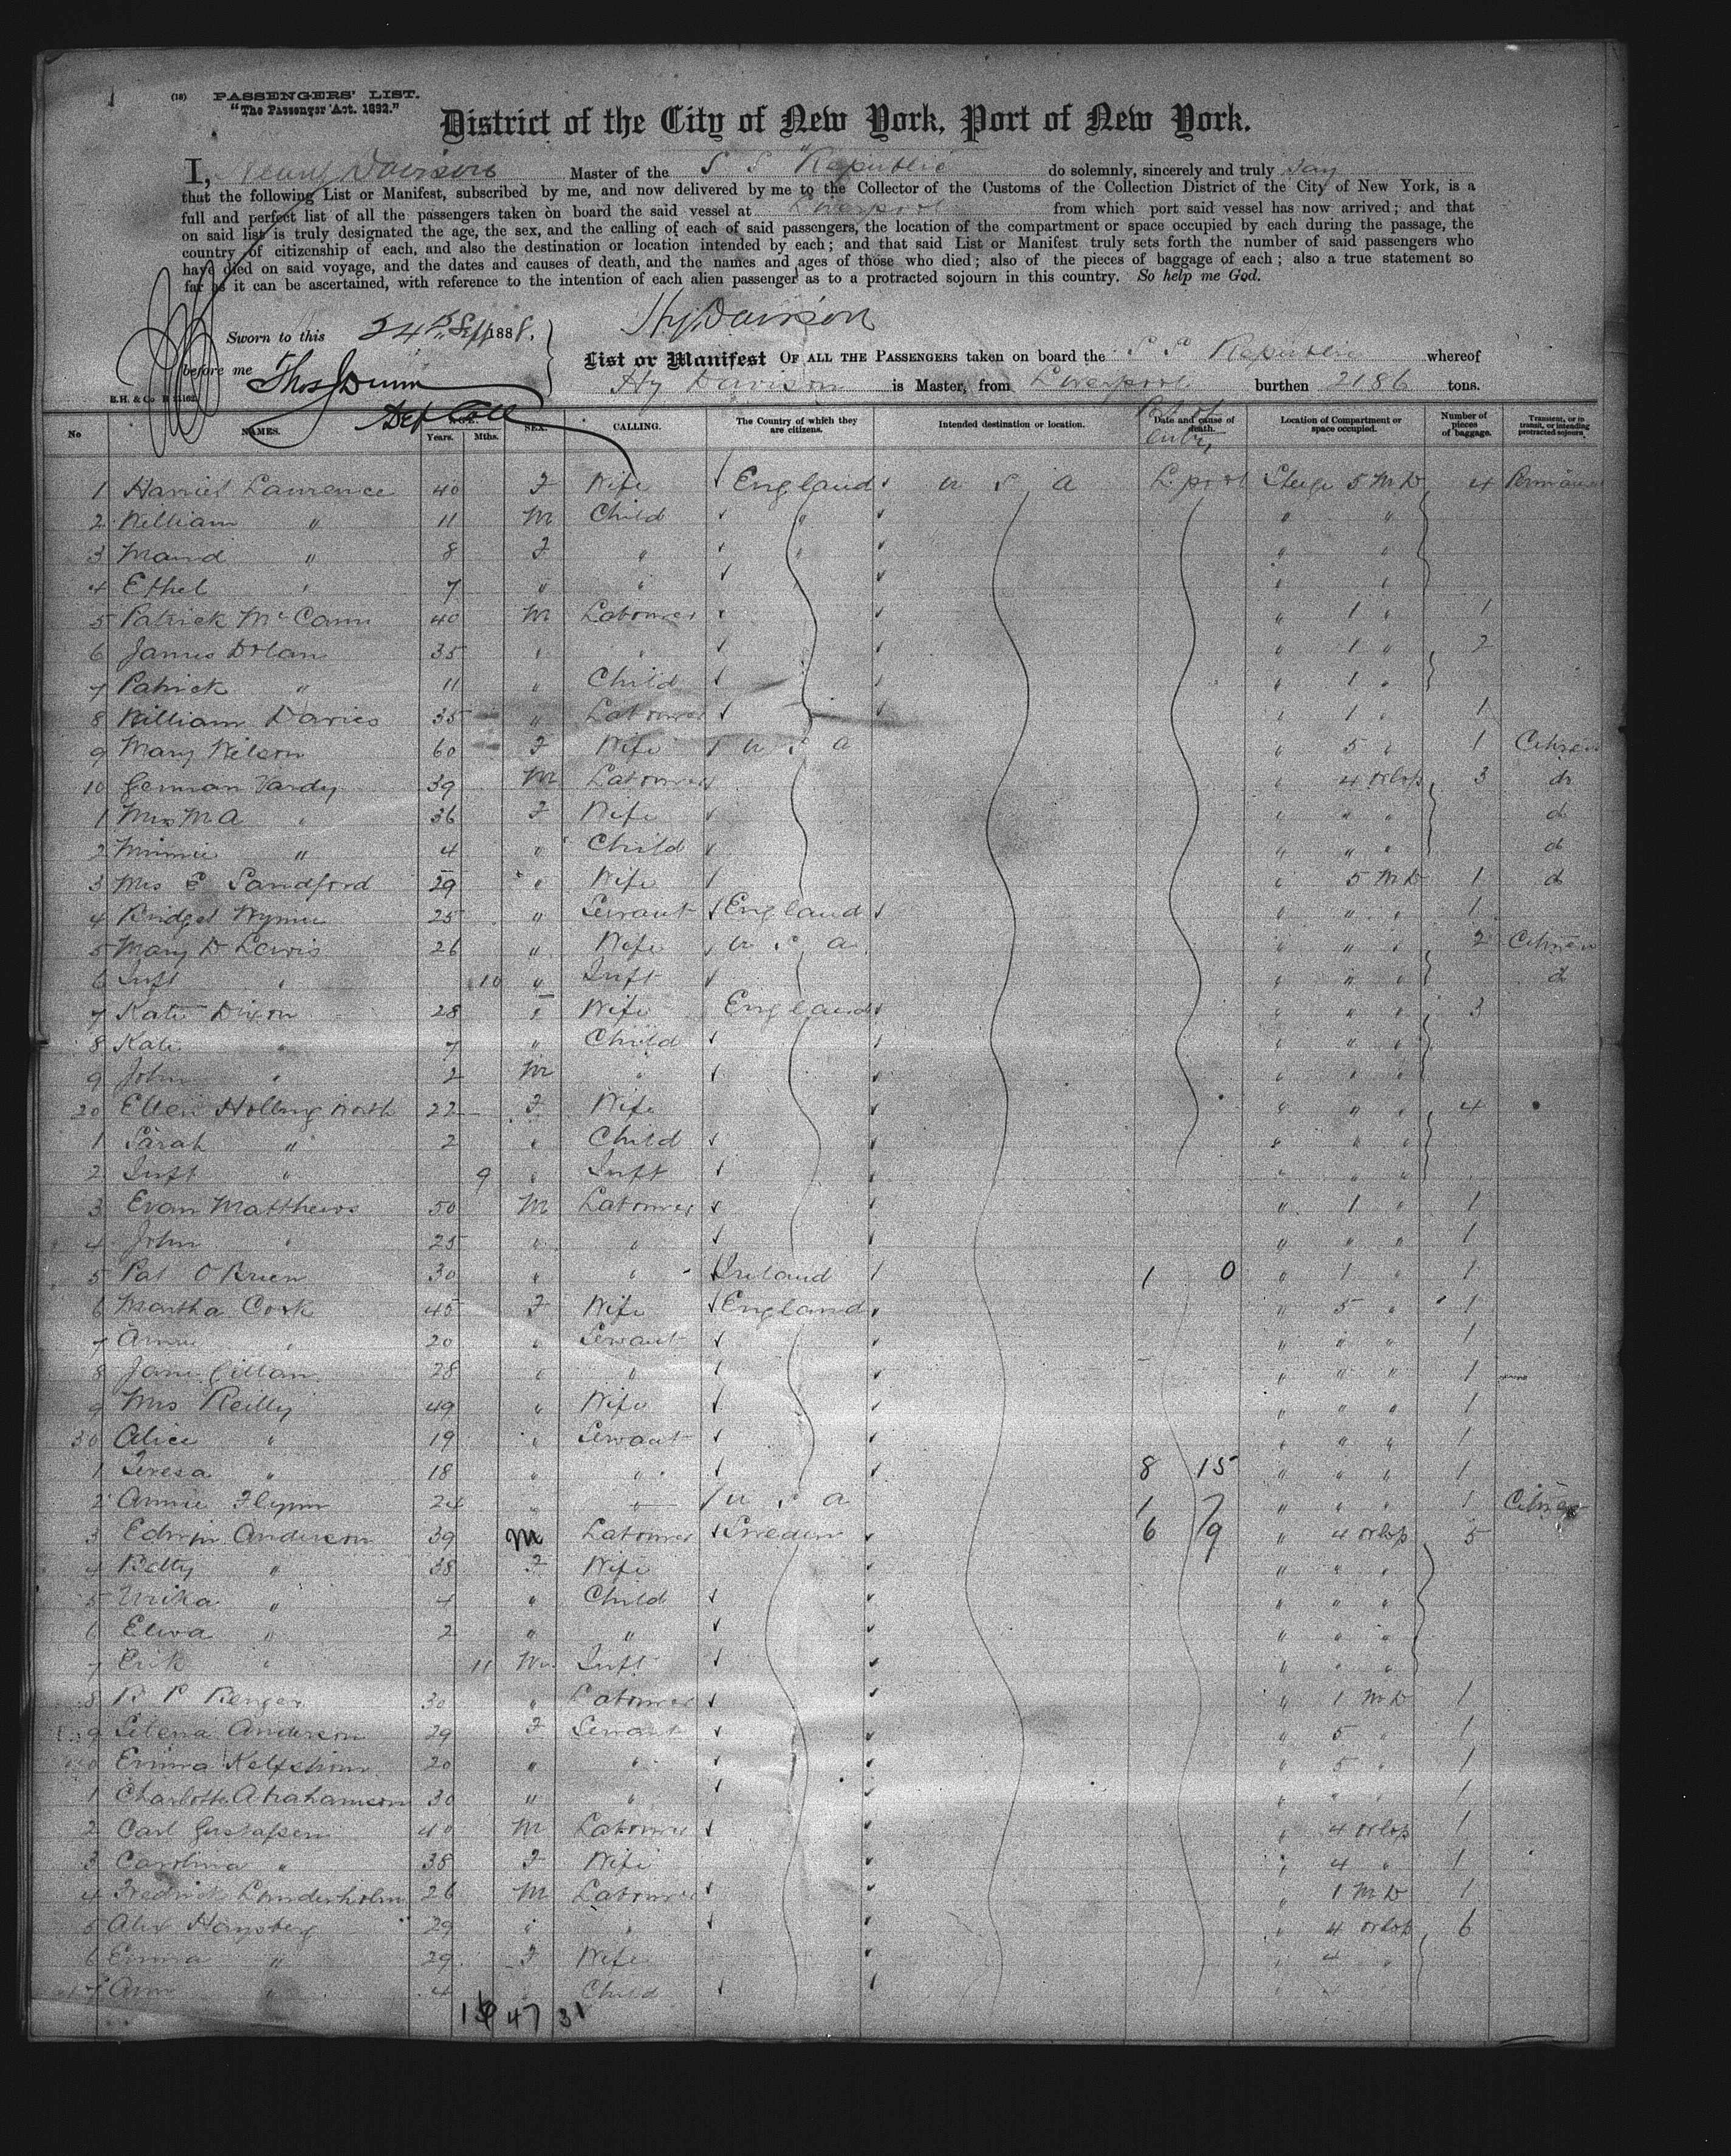 (18) PASSENGERS' LIST.
"The Passenger Act. 1882."
District of the City of New York, Port of New York.
I, Henry Davison Master of the S S Republic do solemnly, sincerely and truly say
that the following List or Manifest, subscribed by me, and now delivered by me to the Collector of the Customs of the Collection District of the City of New York, is a
full and perfect list of all the passengers taken on board the said vessel at Liverpool from which port said vessel has now arrived; and that
on said list is truly designated the age, the sex, and the calling of each of said passengers, the location of the compartment or space occupied by each during the passage, the
country of citizenship of each, and also the destination or location intended by each; and that said List or Manifest truly sets forth the number of said passengers who
have died on said voyage, and the dates and causes of death, and the names and ages of those who died; also of the pieces of baggage of each; also a true statement so
far as it can be ascertained, with reference to the intention of each alien passenger as to a protracted sojourn in this country. So help me God.
Hy Davison
Sworn to this 24th Sept 1888.
before me Thos J Dunn
Dep Coll
List or Manifest OF ALL THE PASSENGERS taken on board the S S Republic whereof
Hy Davison is Master, from Liverpool burthen 2186 tons.
B.H. & Co
No NAMES. AGE. Years. Mths. SEX. CALLING. The Country of which they are citizens. Intended destination or location. Date and cause of death. Location of Compartment or space occupied. Number of pieces of baggage. Transient, or in transit, or intending protracted sojourn.
1 Harriet Laurence 40 F Wife England U S A L.pool Steerge 5 M D 4
2 William " 11 M Child " " "
3 Maud " 8 F " " " "
4 Ethel " 7 " " " "
5 Patrick McCann 40 M Labourer " 1 " 1
6 James Dolan 35 " " " 1 " 2
7 Patrick " 11 " Child " 1 "
8 William Davies 35 " Labourer " 1 " 1
9 Mary Wilson 60 F Wife U S A " 5 " 1 Citizen
10 German Vardy 39 M Labourer " 4 orlop 3 do
1 Mrs M A " 36 F Wife " " " d
2 Minnie " 4 " Child " " " d
3 Mrs E Sandford 29 " Wife " 5 M D 1 d
4 Bridget 25 " Servant England " " " 1
5 Mary D Lewis 26 " Wife U S A " " " 2 Citizen
6 Inft " 10 " Inft " " " d
7 Kate Dixon 28 " Wife England " " " 3
8 Kate " 7 " Child " " "
9 John " 2 M " " " "
20 Ellen Hollingworth 22 F Wife " " " 4
1 Sarah " 2 " Child " " "
2 Inft " 9 " Inft " "
3 Evan Matthews 50 M Labourer " 1 " 1
4 John " 25 " " " " " 1
5 Pat O'Brien 30 " " Ireland 1 0 " 1 " 1
6 Martha Cook 45 F Wife England " 5 " 1
7 Annie " 20 " Servant " " " 1
8 Jane Gillan 28 " " " " " 1
9 Mrs Reilly 49 " Wife " " " 1
30 Alice " 19 " Servant " " " 1
1 Teresa " 18 " " 8 15 " " " 1
2 Annie Flynn 24 " " U S A 1 7 " " " 1 Citizen
3 Edwin Anderson 39 M Labourer Sweden 6 9 " 4 orlop 5
4 Betty " 38 F Wife " " "
5 Ulrika " 4 " Child " " "
6 Elwa " 2 " " " " "
7 Erik " 11 M Inft " " "
8 B P Benger 30 " Labourer " 1 M D 1
9 Selena Anderson 29 F Servant " 5 " 1
Emma 20 " " " 5 " 1
1 Charlotte Abrahamson 30 " " " " " 1
2 Carl Gustafsen 40 M Labourer " 4 orlop 1
3 Carolina " 38 F Wife " 4 " 1
4 Fredrick Lunderholm 26 M Labourer " 1 M D 1
5 Alex 29 " " " 4 orlop 6
6 Emma " 29 F Wife " 4 "
7 Ann " 4 " Child
47 31